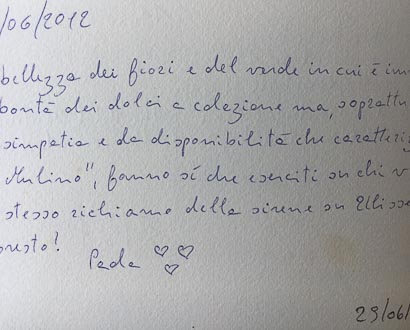 /06/2012
bellezza dei fiori e del verde in cui è im
bontà dei dolci a colazione ma, soprattu
simpatia e da disponibilità che caratteriz
Mulino", fanno sí che eserciti su chi v
stesso richiamo delle sirene su Ulisse
presto!
Paola
29/06/